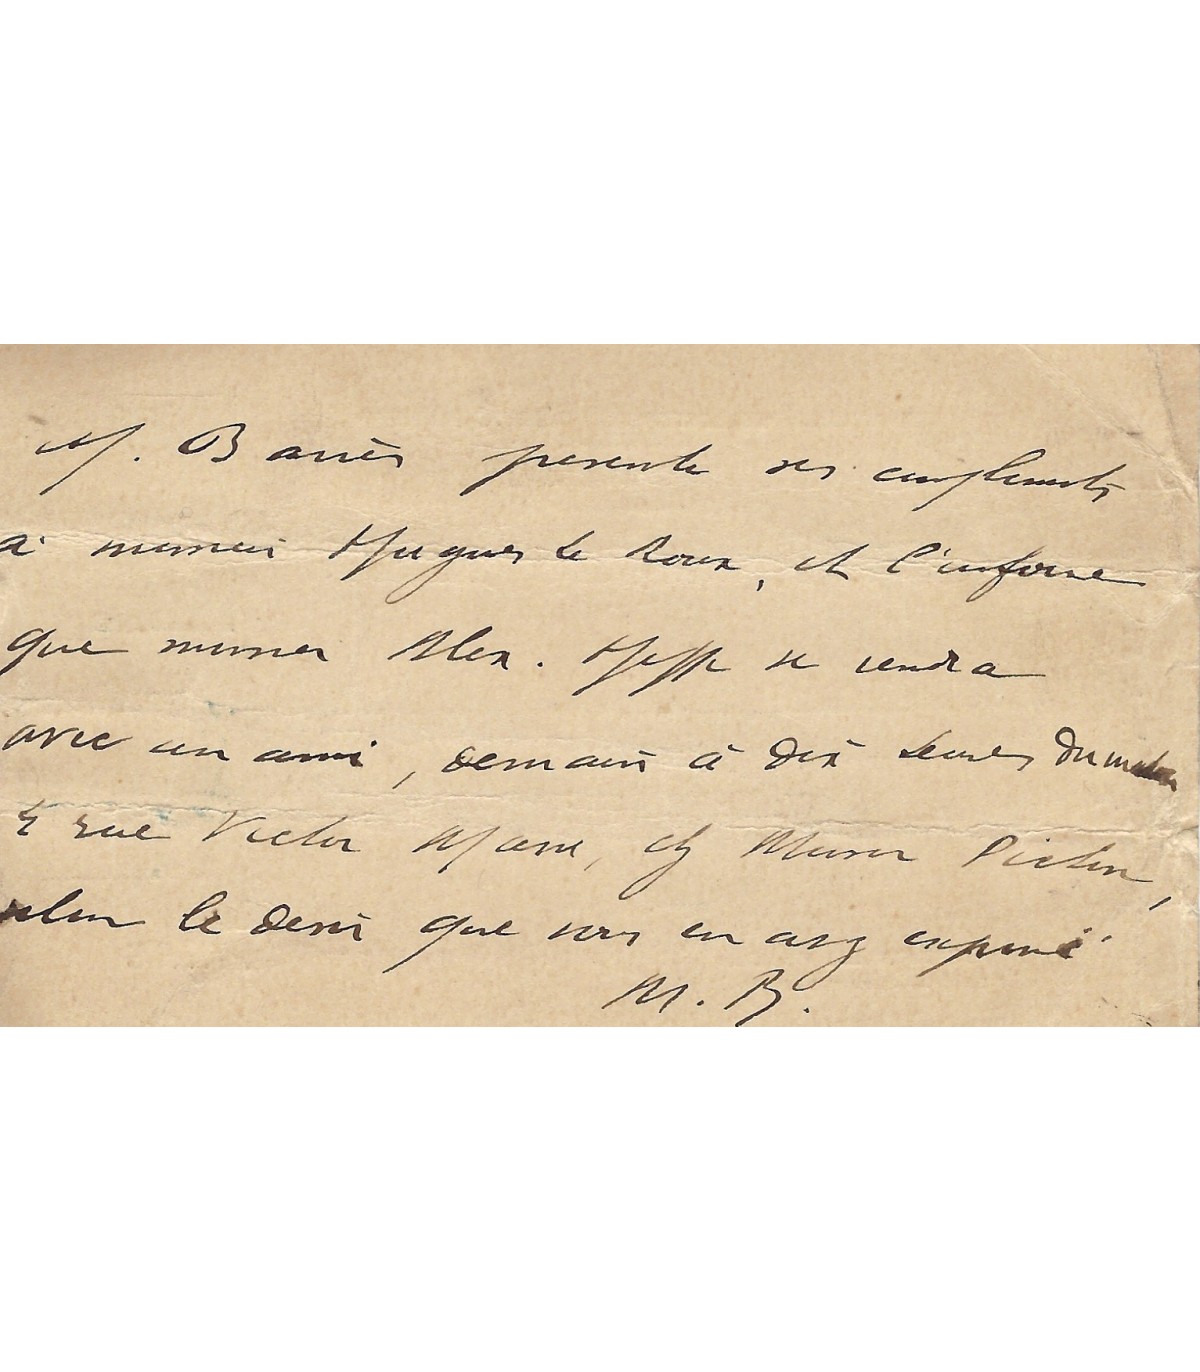 M. Barrès présente ses compliments
à monsieur Hugues Le Roux, et l'informe
que monsieur Alex. Hepp se rendra
avec un ami, demain à dix heures du matin
rue Victor Massé, chez Monsieur
selon le désir que vous en avez exprimé.
M. B.